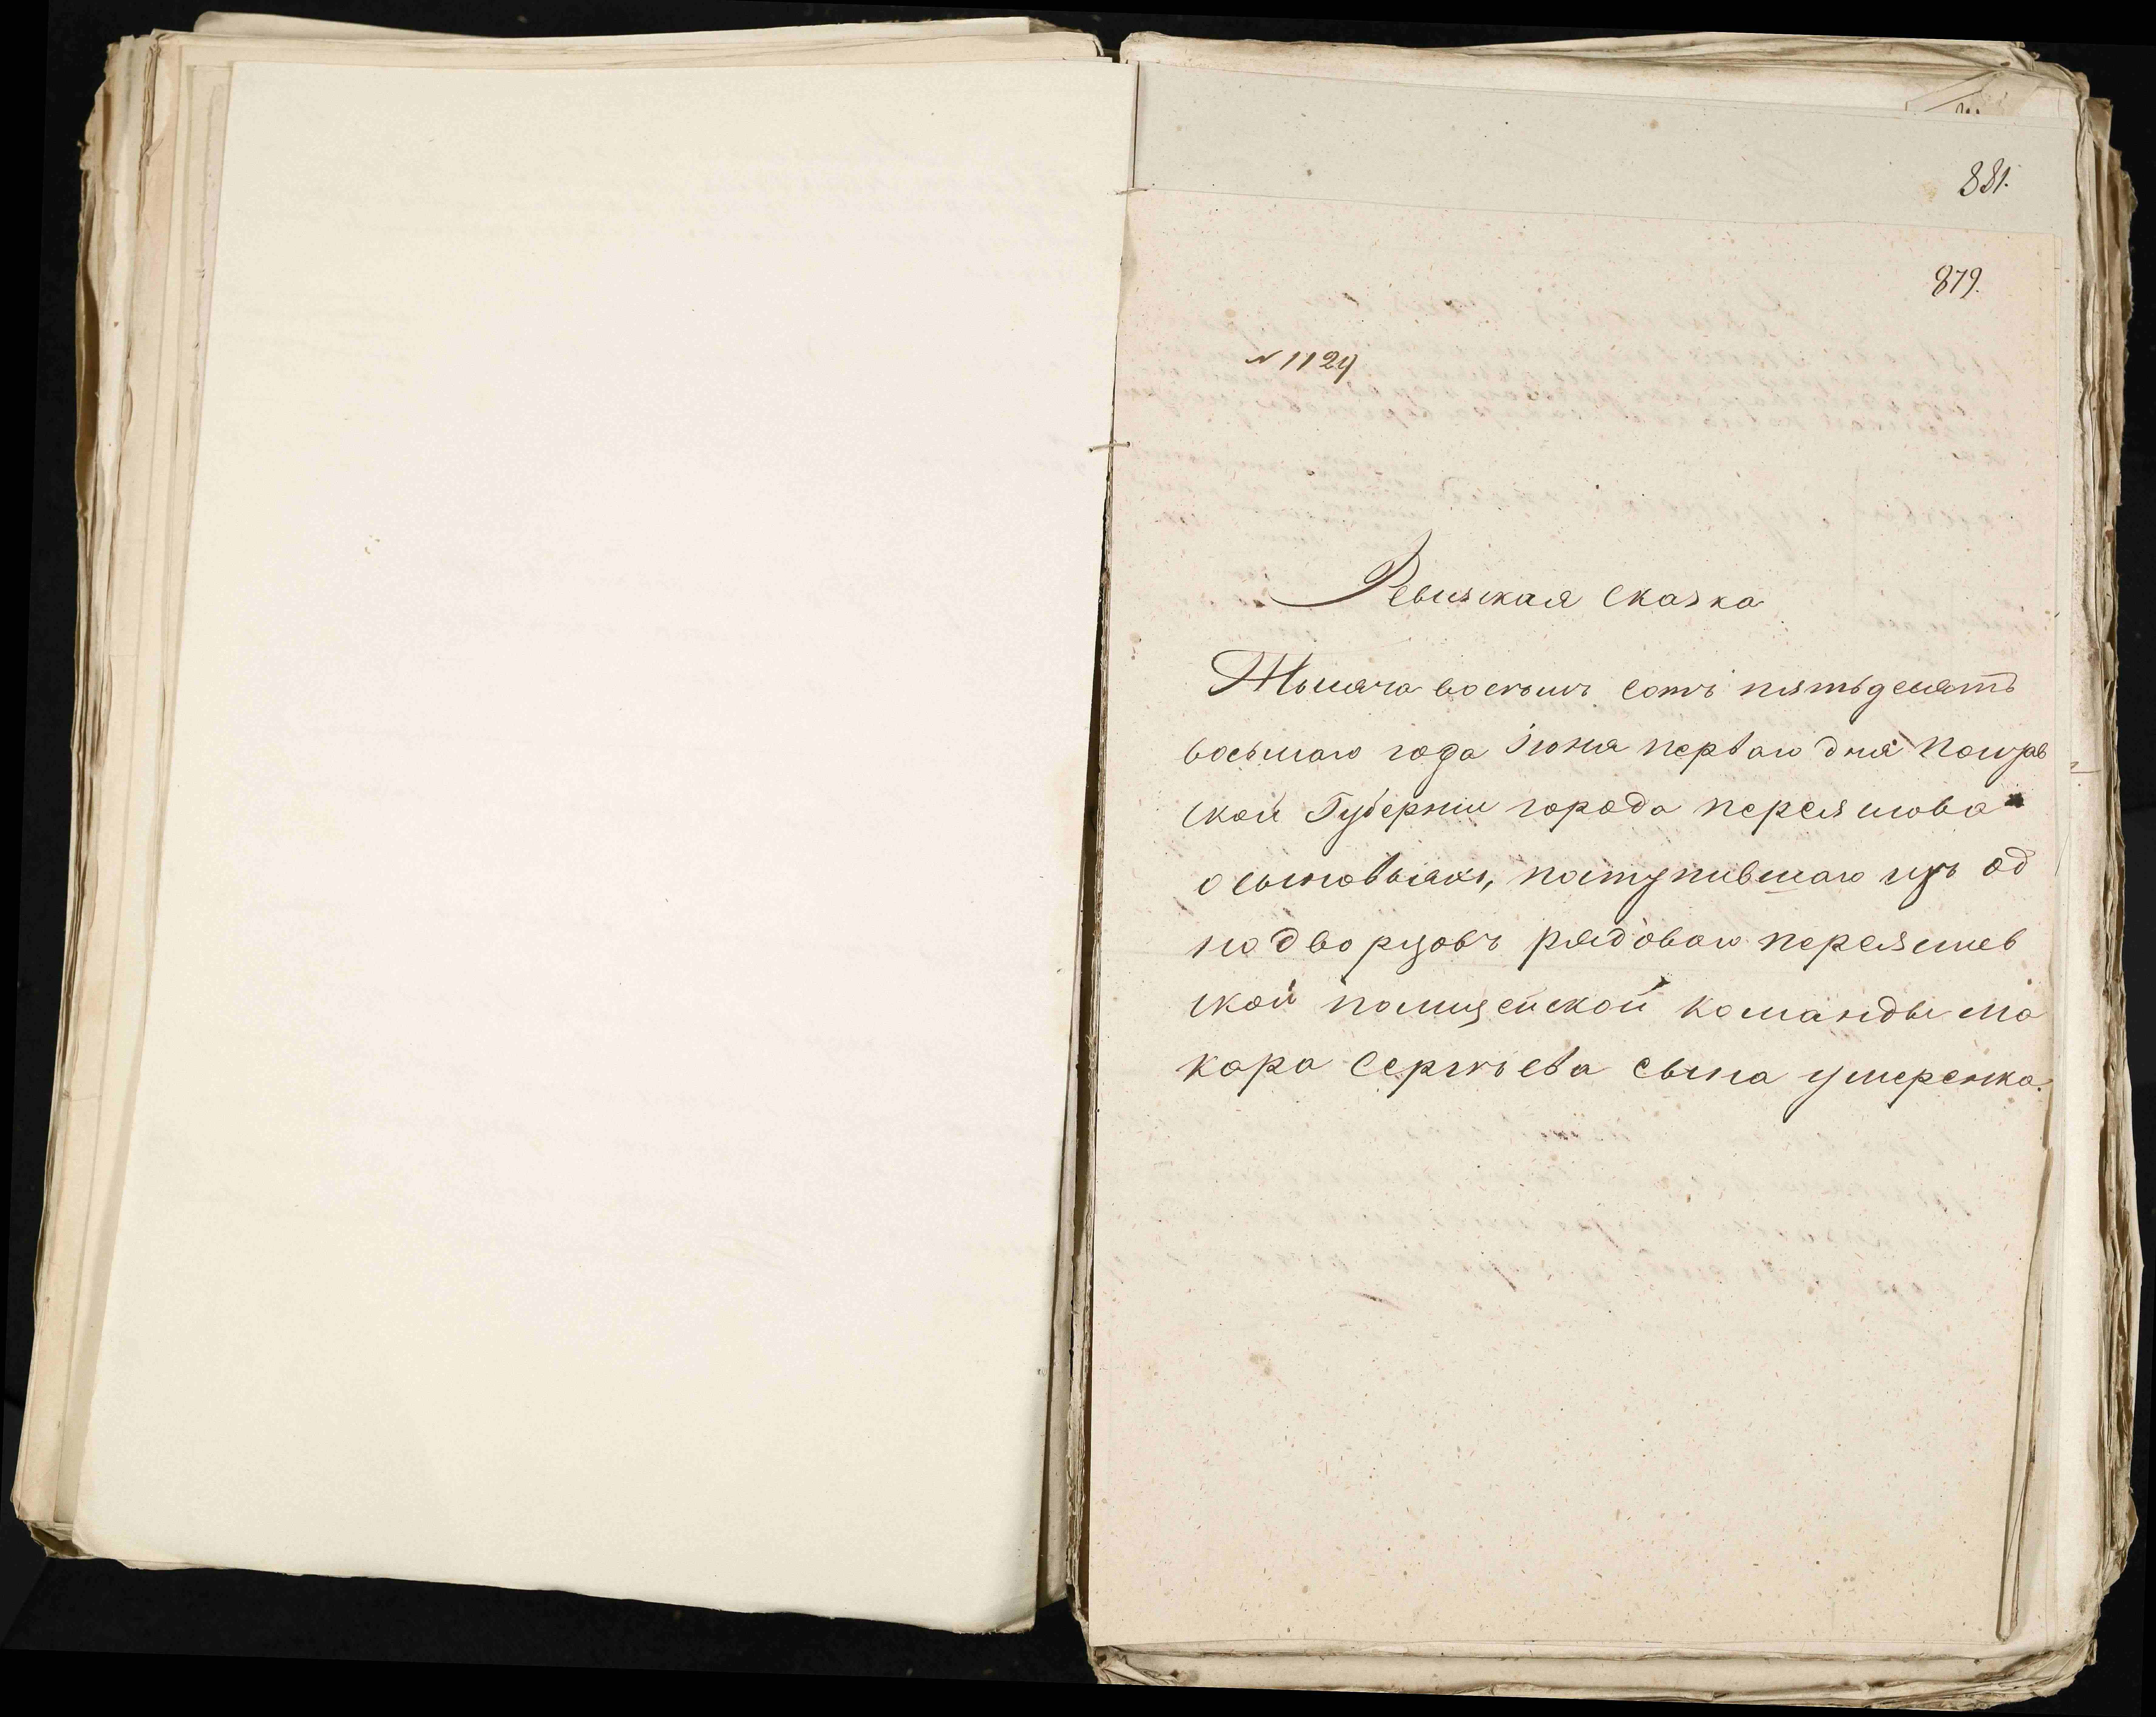 881.
879.
N 1124
Ревизская сказка
Тысяча восемь сотъ пятьдесятъ
восьмаго года Іюня перваго дня Полтав
ской Губерніи города переяслова
о сыновьяхъ, поступившаго изъ од
нодворцовъ рядоваго переяслов
ской полицейской команды ма
кара Сергѣева сына умеренка.